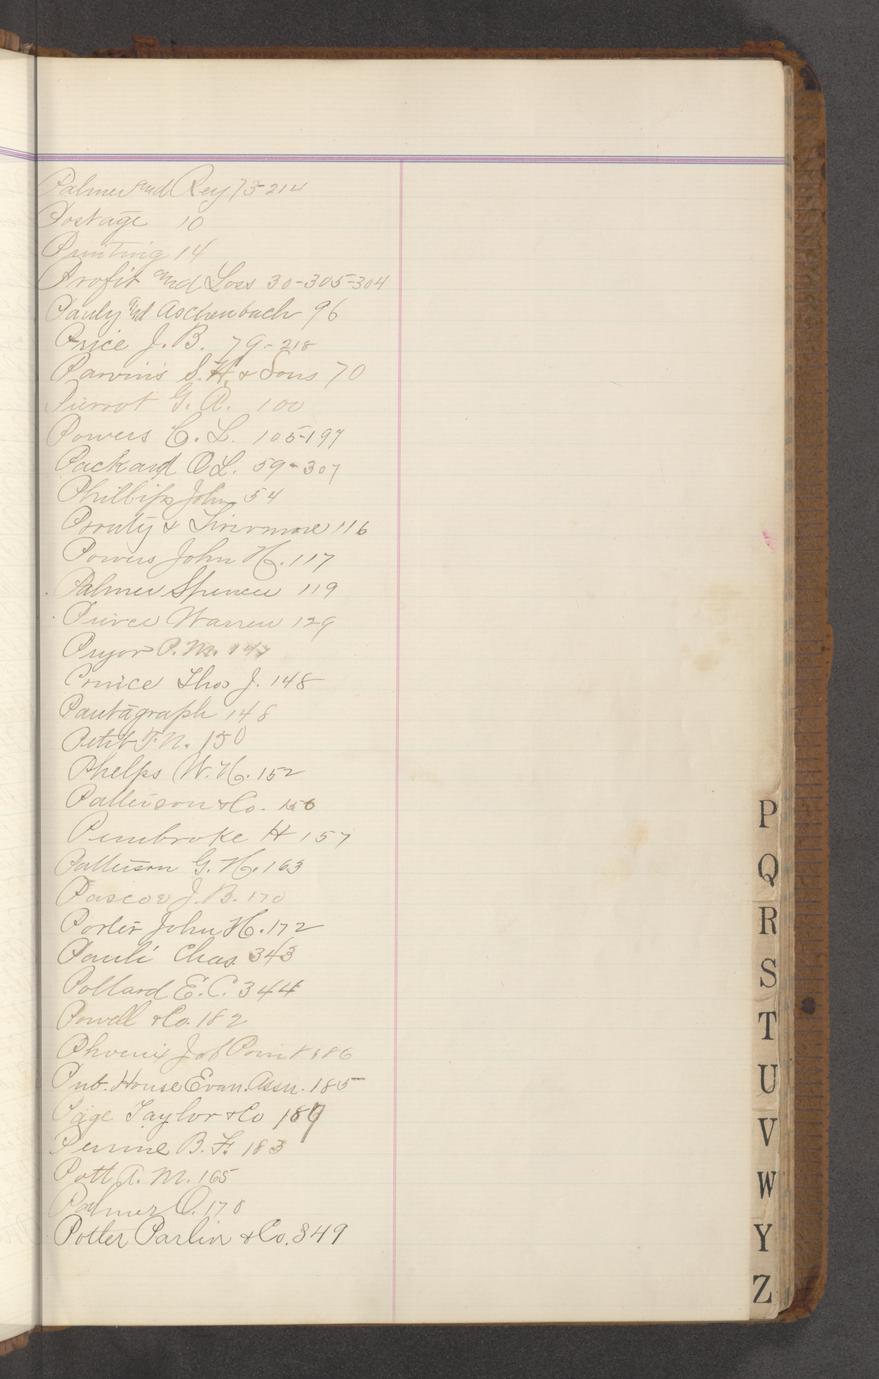 Palmer and Rey 75-214
Postage 10
Printing 14
Profit and Loss 30-305-304
Pauly and Aschenbach 96
Price J. B. 79-218
Parvin's S. H. & Sons 70
Pierrot G. A. 100
Powers C. L. 105-197
Packard O L. 59-307
Phillips John 54
Prouty & Livermore 116
Powers John H. 117
Palmer Spencer 119
Pierce Warren 129
Pryor P. M. 147
Prince Thos J. 148
Pantagraph 148
Petit F. N. 150
Phelps W. H. 152
Patterson & Co. 156
Pembroke H 157
Patterson G. H. 163
Pascoe J. B. 170
Porter John H. 172
Pauli Chas 343
Pollard E. C. 344
Powell & Co. 182
Phoenix Job Print 186
Pub. House Evan. Assn. 185
Page Taylor & Co 189
Perrine B. F. 183
Pott A. M. 165
Palmer O. 178
Potter Parlin & Co. 349
P
Q
R
S
T
U
V
W
Y
Z